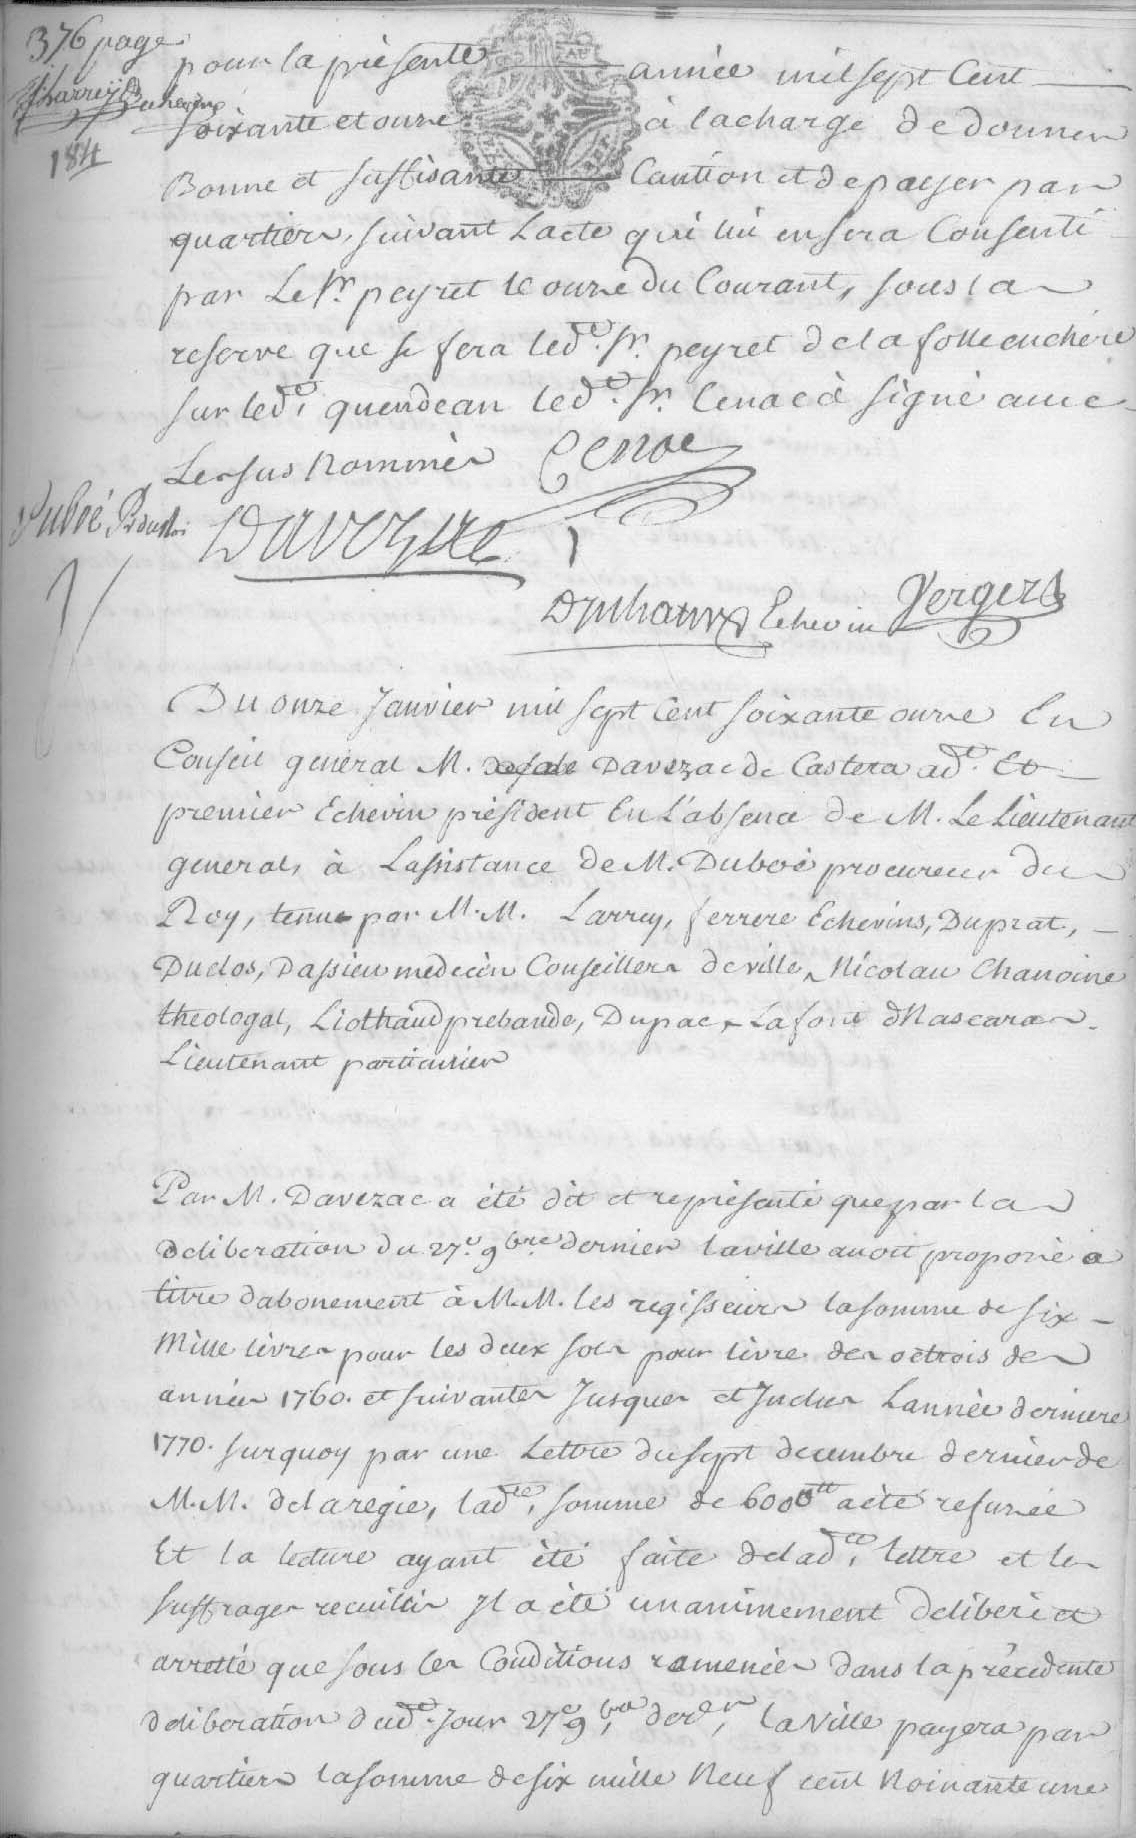 376 page
Larrey Echevin
184
pour la présente année mil sept Cent
soixante et onze à la charge de donner
Bonne et suffisante Caution et de payer par
quartiers, suivant Lacte qui lui en sera Consenti
par Le Sr. peyret le onze du Courant, sous la
reserve que se fera led.t Sr. peyret de la folle enchère
sur led.t quendean led.t Sr. Cenac à signé avec
Les sus nommés Cenac
Duboé
Davezac
Duhaux Echevin Vergers
Du onze Janvier mil sept Cent soixante onze En
Conseil general M. Davezac de Castera ad.t Et
premier Echevin président En L'absence de M. Le Lieutenant
general, à Lassistance de M. Duboé procureur du
Roy, tenue par M.M. Larrey, ferrere Echevins, Duprat,
Duclos, Dassieu medecin Conseillers de ville, Nicolau Chanoine
theologal, Liothaud prebande, Dupac, Lafont dNascaras
Lieutenant particulier
Par M. Davezac a été dit et représenté que par la
deliberation du 27.e 9bre dernier la ville avoit proposé a
titre dabonement à M.M. les regisseurs la somme de six
Mille livres pour les deux sols pour livre des octrois des
années 1760. et suivantes Jusques et Inclus Lannée derniere
1770. surquoy par une Lettre du sept decembre dernier de
M.M. de la regie, lad.te somme de 6000tt a été refusée
Et la lecture ayant été faite de lad.te lettre et les
suffrages recuillis Il a été unanimement deliberé et
arretté que sous les Conditions ramenées dans la précedente
deliberation dud.t Jour 27e 9bre der.r, la Ville payera par
quartiers la somme de six mille Neuf cent Noinante une